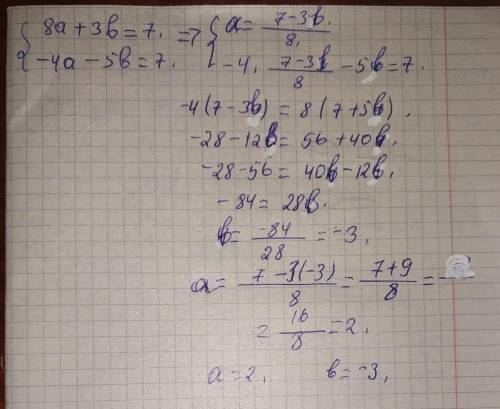 { 8a + 3b = 7. => { a = (7-3b)/8.
{ -4a - 5b = 7. { -4. (7-3b)/8 - 5b = 7.
-4(7-3b) = 8(7+5b).
-28-12b = 56+40b.
-28-56 = 40b-12b,
-84 = 28b.
b = -84/28 = -3,
a = (7-3(-3))/8 = (7+9)/8 =
= 16/8 = 2.
a = 2, b = -3,